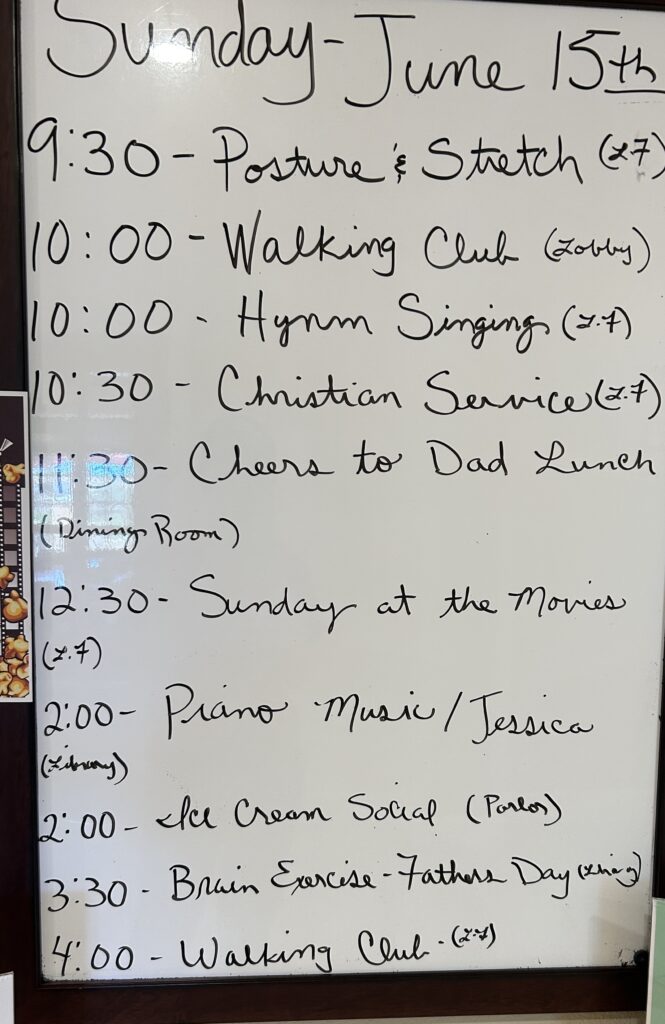 Sunday - June 15th
9:30 - Posture & Stretch (L7)
10:00 - Walking Club (Lobby)
10:00 - Hynm Singing (L.7)
10:30 - Christian Service (L.7)
11:30 - Cheers to Dad Lunch
(Dining Room)
12:30 - Sunday at the Movies
(L.7)
2:00 - Piano Music / Jessica
(Library)
2:00 - Ice Cream Social (Parlor)
3:30 - Brain Exercise - Fathers Day
4:00 - Walking Club - (L7)